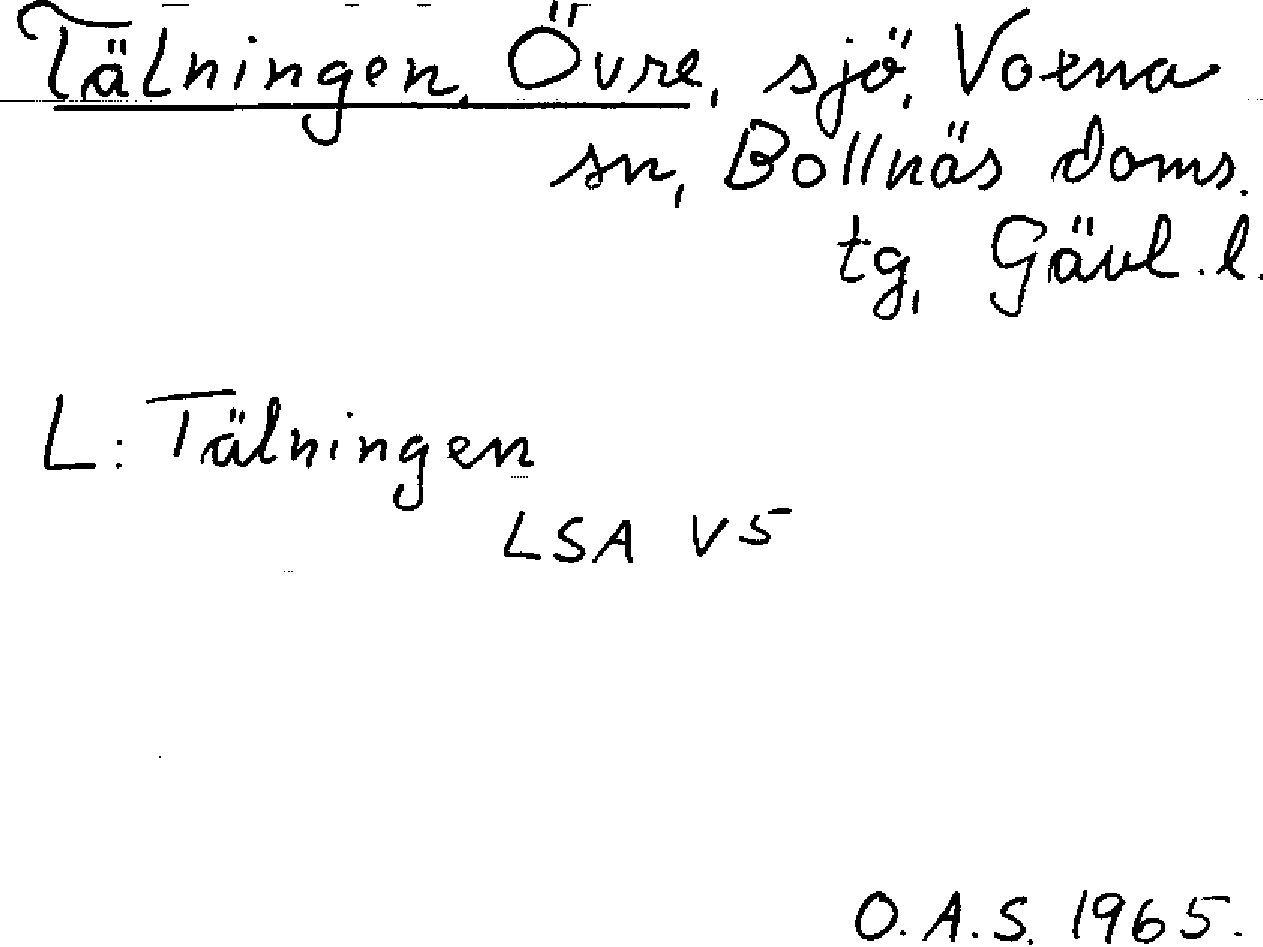 Tälningen, Övre, sjö, Voxna
sn, Bollnäs doms.
tg, Gävl. l.
L: Tälningen
LSA V5
O.A.S. 1965.